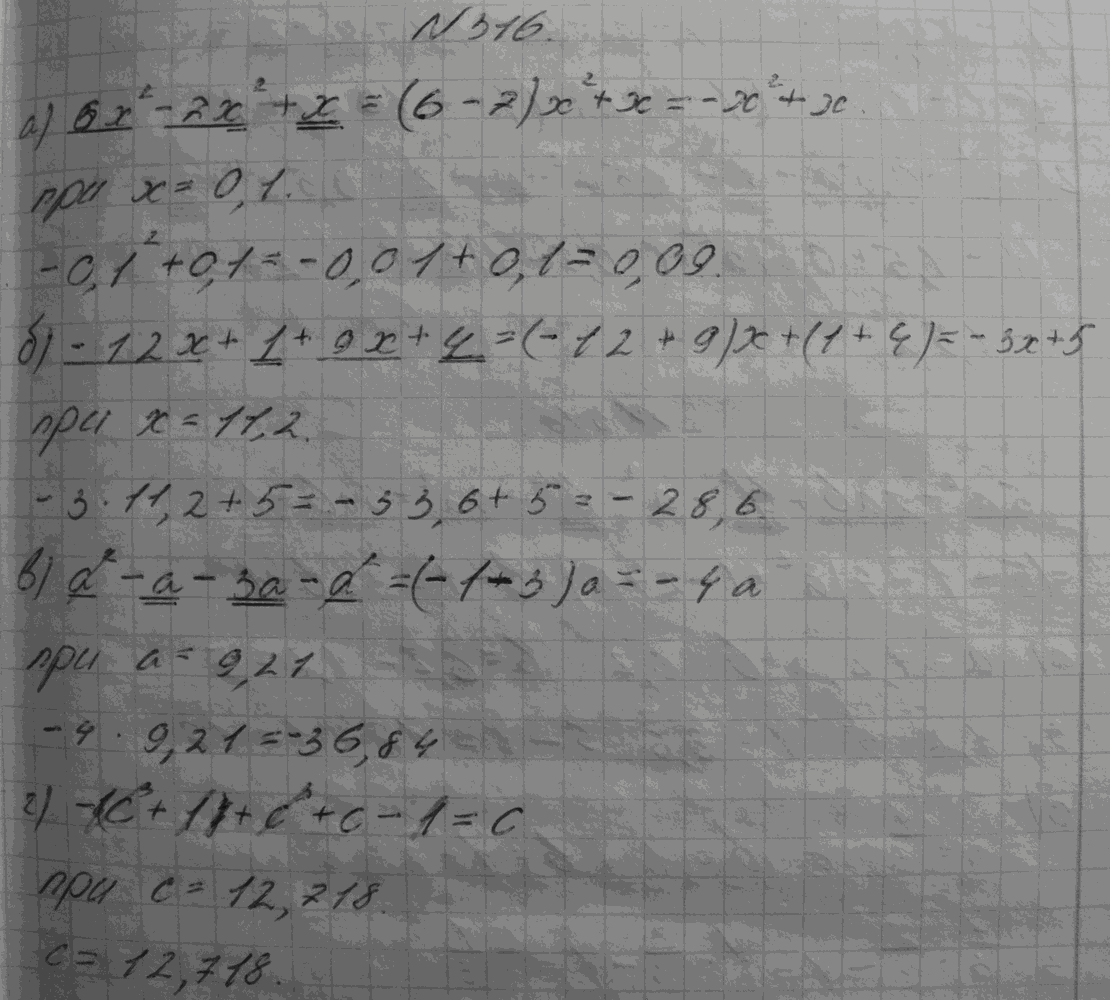 N 316.
а) 6x² - 7x² + x = (6 - 7)x² + x = -x² + x.
при x = 0,1.
-0,1² + 0,1 = -0,01 + 0,1 = 0,09.
б) -12x + 1 + 9x + 4 = (-12 + 9)x + (1 + 4) = -3x + 5
при x = 11,2.
-3 · 11,2 + 5 = -33,6 + 5 = -28,6
в) a² - a - 3a - a² = (-1 - 3)a = -4a
при a = 9,21
-4 · 9,21 = -36,84
г) -c³ + 1 + c³ + c - 1 = c
при c = 12,718.
c = 12,718.